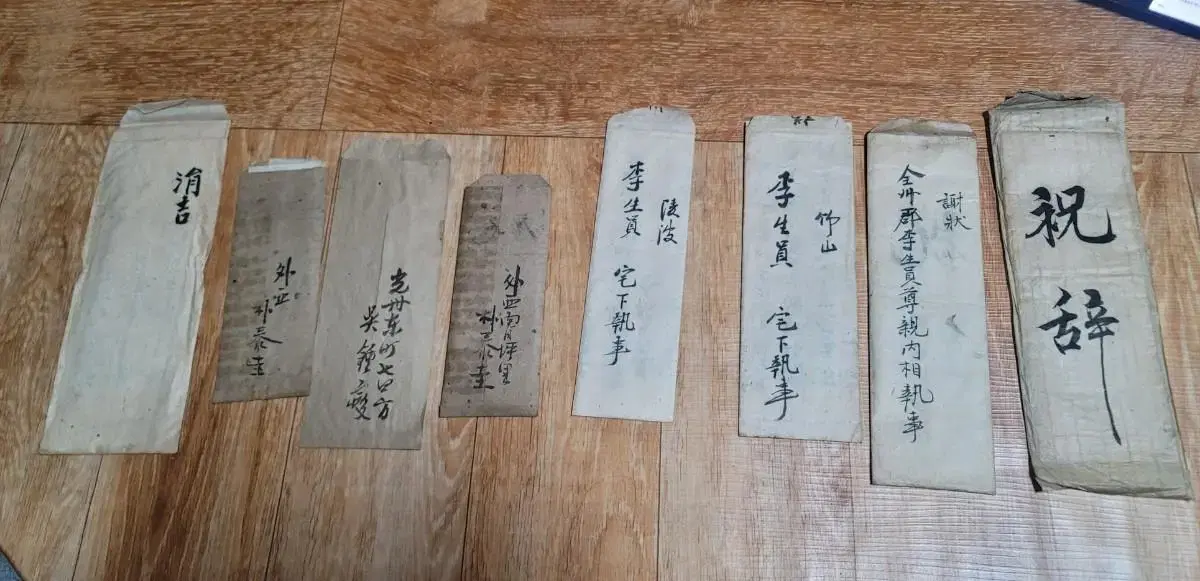 涓吉
外西
朴泰圭
光州東町七四方
吳鍾燮
外西面月坪里
朴泰圭
陵波
李生員 宅下執事
竹山
李生員 宅下執事
謝狀
全州郡李生員尊親內相執事
祝辞